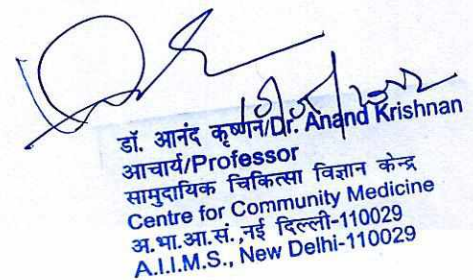 डॉ. आनंद कृष्णन/Dr. Anand Krishnan
आचार्य/Professor
सामुदायिक चिकित्सा विज्ञान केन्द्र
Centre for Community Medicine
अ.भा.आ.सं.,नई दिल्ली-110029
A.I.I.M.S., New Delhi-110029